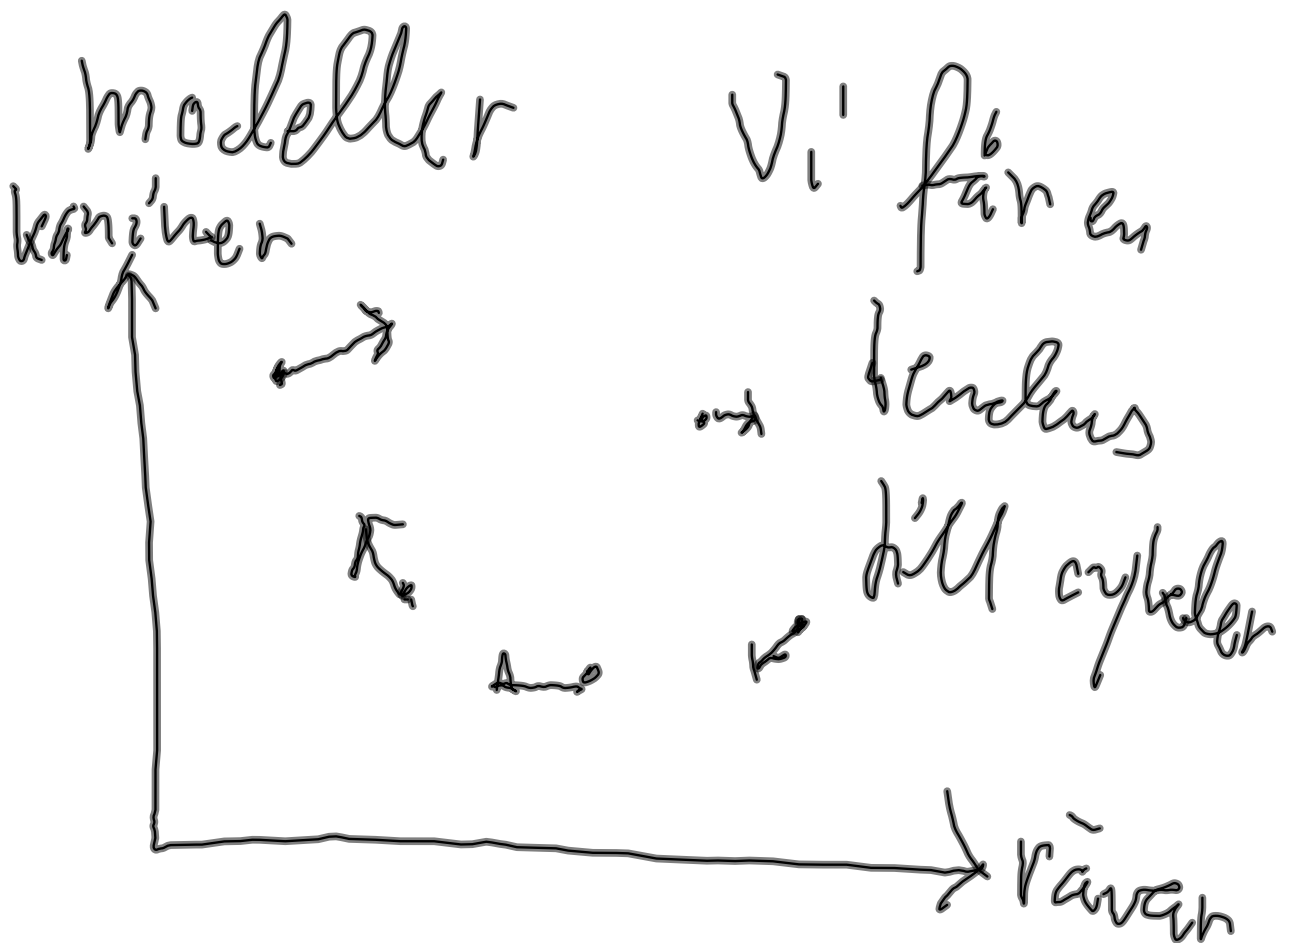 modeller
kaniner
Vi får en
tendens
till cykler
rävar